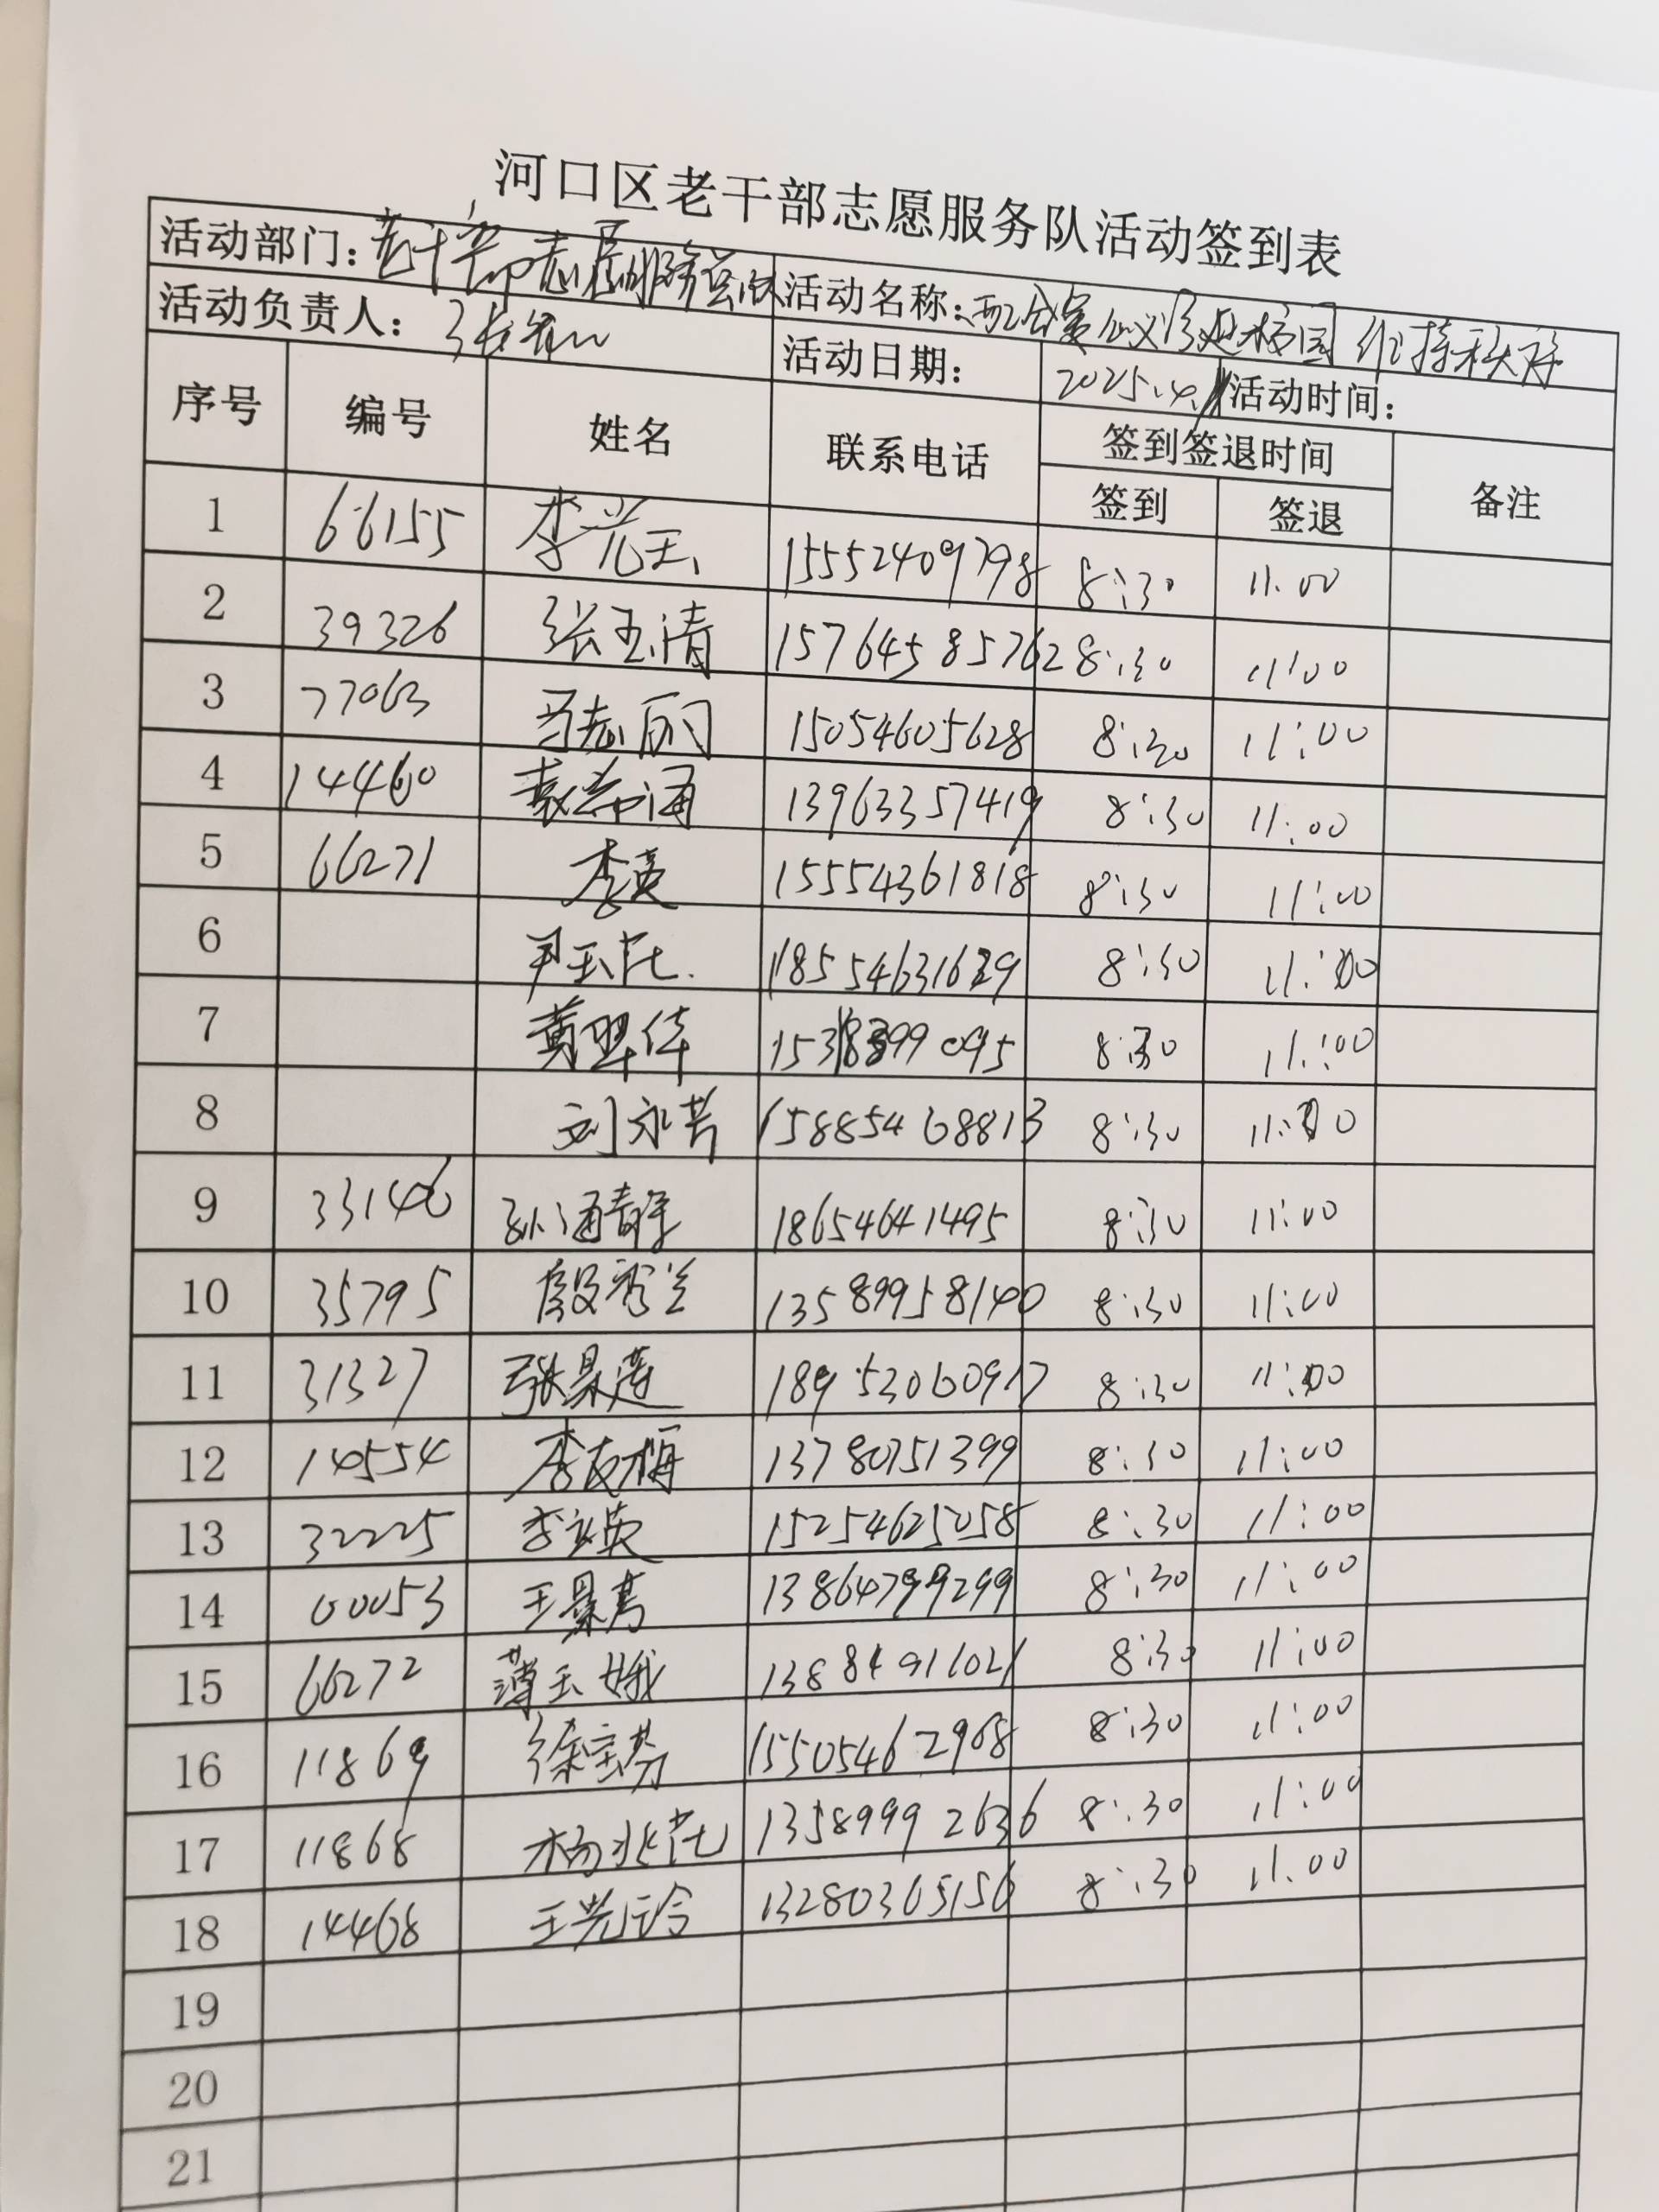 河口区老干部志愿服务队活动签到表
活动部门：老干部志愿服务总队 活动名称： 校园 维持秩序
活动负责人： 活动日期： 2025.4. 活动时间：
序号 编号 姓名 联系电话 签到签退时间 备注
签到 签退
1 66155 李兰玉 15552409798 8:30 11:00
2 39326 张玉清 15764585762 8:30 11:00
3 77063 马志丽 15054605628 8:30 11:00
4 14460 袁希涌 13963357419 8:30 11:00
5 66271 李英 15554361818 8:30 11:00
6 尹玉花 18554631629 8:30 11:00
7 黄翠华 099095 8:30 11:00
8 刘永芳 15885468813 8:30 11:00
9 33146 孙涌静 18654641495 8:30 11:00
10 35795 殷秀兰 13589958140 8:30 11:00
11 31327 张景莲 18953060917 8:30 11:00
12 14554 李友梅 13780751399 8:30 11:00
13 32225 李立英 15254625058 8:30 11:00
14 00053 王景嵩 13864799299 8:30 11:00
15 66272 薄玉娥 13884916021 8:30 11:00
16 11869 徐宝芬 15505462968 8:30 11:00
17 11868 杨兆花 13589992636 8:30 11:00
18 14468 王兰玲 13280365156 8:30 11:00
19
20
21